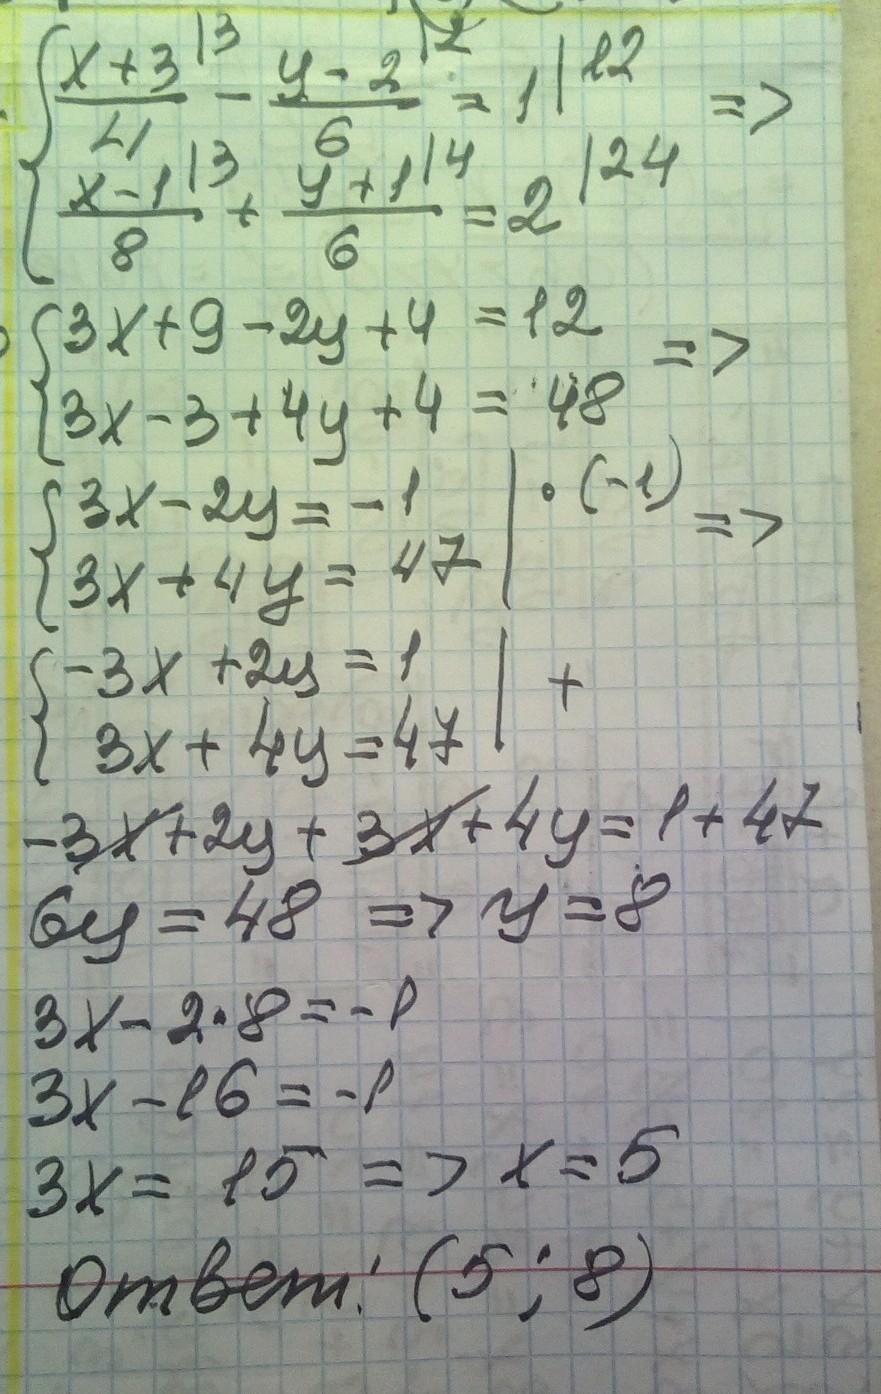 { (x+3)/4 |3 - (y-2)/6 |2 = 1 |12 =>
(x-1)/8 |3 + (y+1)/6 |4 = 2 |24
{ 3x+9-2y+4 = 12 =>
3x-3+4y+4 = 48
{ 3x-2y=-1 | •(-1) =>
3x+4y=47
{ -3x+2y=1 | +
3x+4y=47
-3x+2y+3x+4y=1+47
6y=48 => y=8
3x-2•8=-1
3x-16=-1
3x=15 => x=5
Ответ: (5; 8)